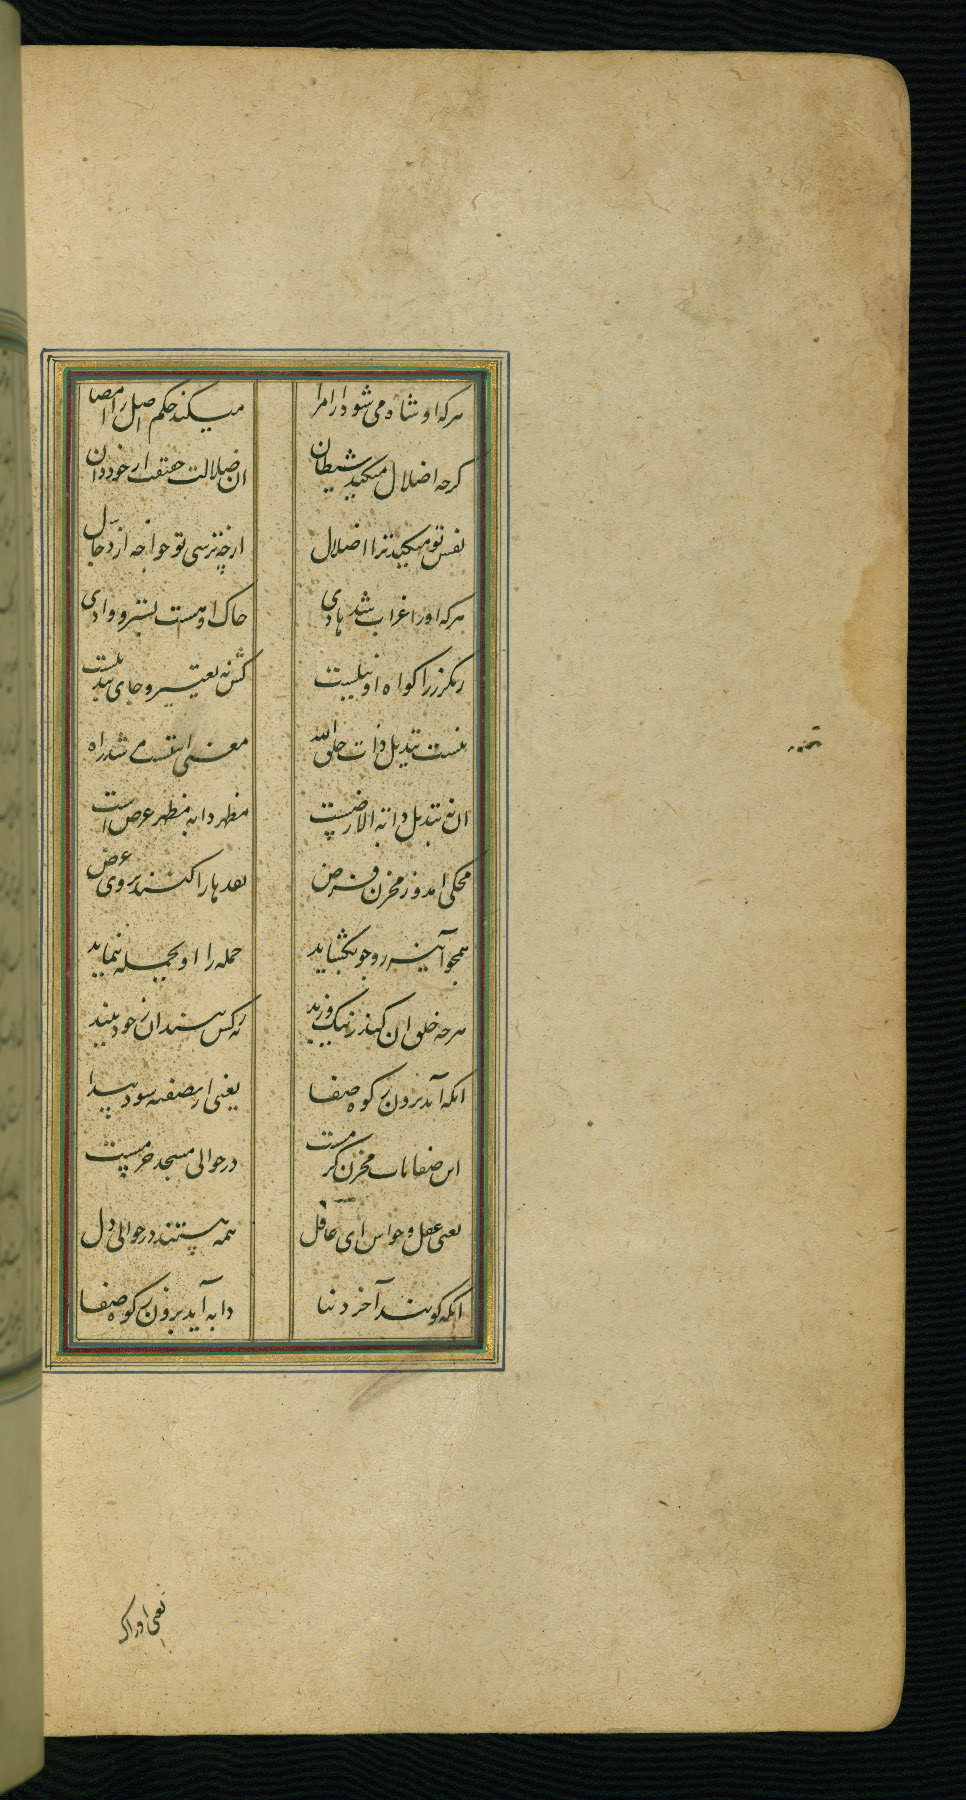 هرکه او شاه می شود دارا مرا میکند حکم اصل را امضا
کرچه اضلال میکند شیطان ان ضلالت حقیقت از خود دان
نفس تو میکند ترا اضلال از چه ترسی تو خواجه از دجال
هرکه او را غراب شد هادی جاک او هست بستر و وادی
را کواه او نیست کش نه تغییر و جای تبدیلست
نیست تبدیل ذات خلق الله معنی شد راه
ان نه تبدیل دابة الارضست مظهر دابه مظهر عرض است
محکی امد و ز مخزن فرض نقدها را کنند بروی عرض
همچو آینه رو چو بکشاید جمله را او بجمله نماید
هرچه خلق ان کنند ز نیک و ز بد هرکس ان ز خود بیند
انکه آید برون ز کوه صفا یعنی از تصفیه شود پیدا
این صفا باب مخزن کرمست در حوالی مسجد حرمست
یعنی عقل و حواس ای عاقل همه هستند در حوالی دل
انکه کویند آخر دنیا دابه آید برون ز کوه صفا
یعنی ادراک